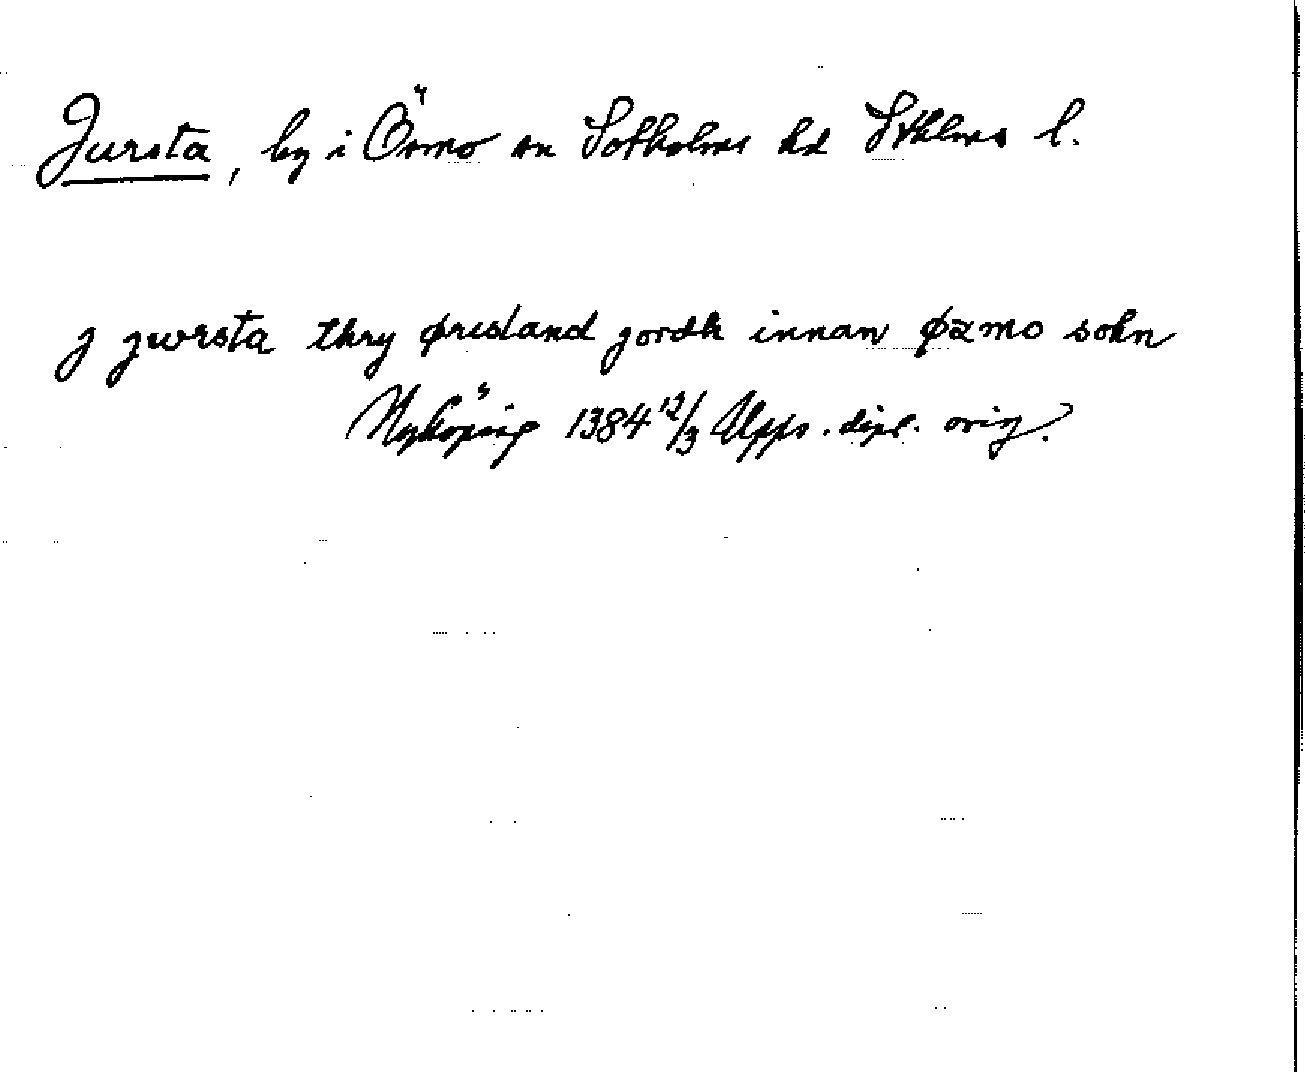 Jursta, by i Ösmo sn Sotholms hd Sthlms l.
j jwrsta thry ørisland jordh innan øzmo sokn
Nyköping 1384 12/3 Upps. dipl. orig.